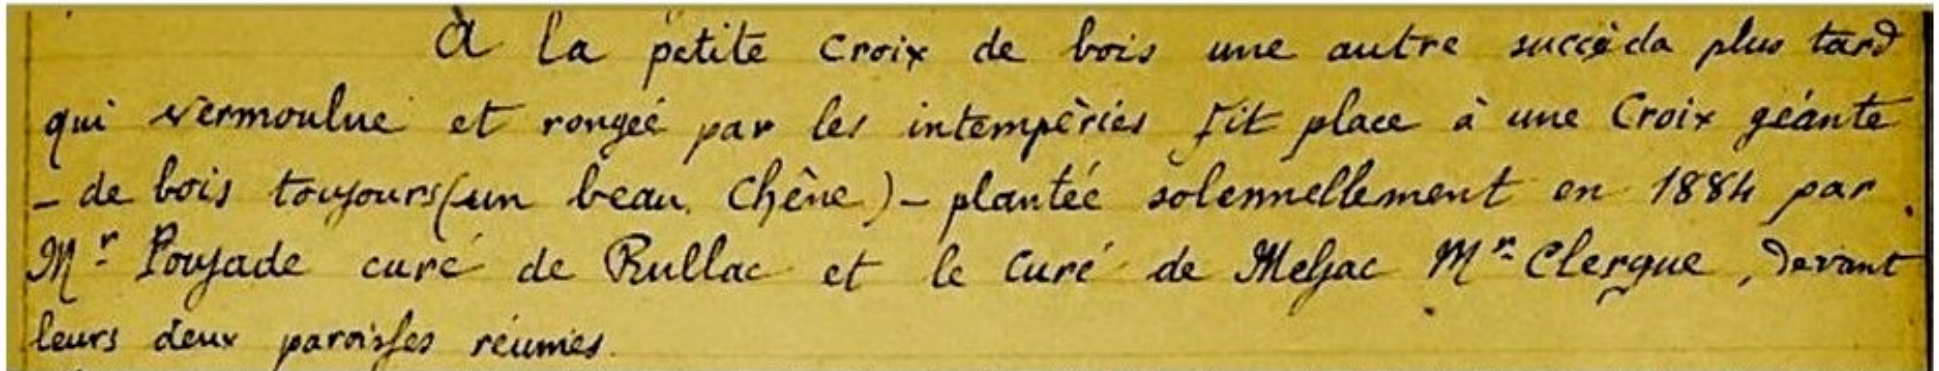 A la petite Croix de bois une autre succèda plus tard
qui vermoulue et rongée par les intempèries fit place à une Croix géante
- de bois toujours (un beau Chêne) - plantée solennellement en 1884 par
Mr Poujade curé de Rullac et le Curé de Meljac Mr Clergue, devant
leurs deux paroisses réunies.